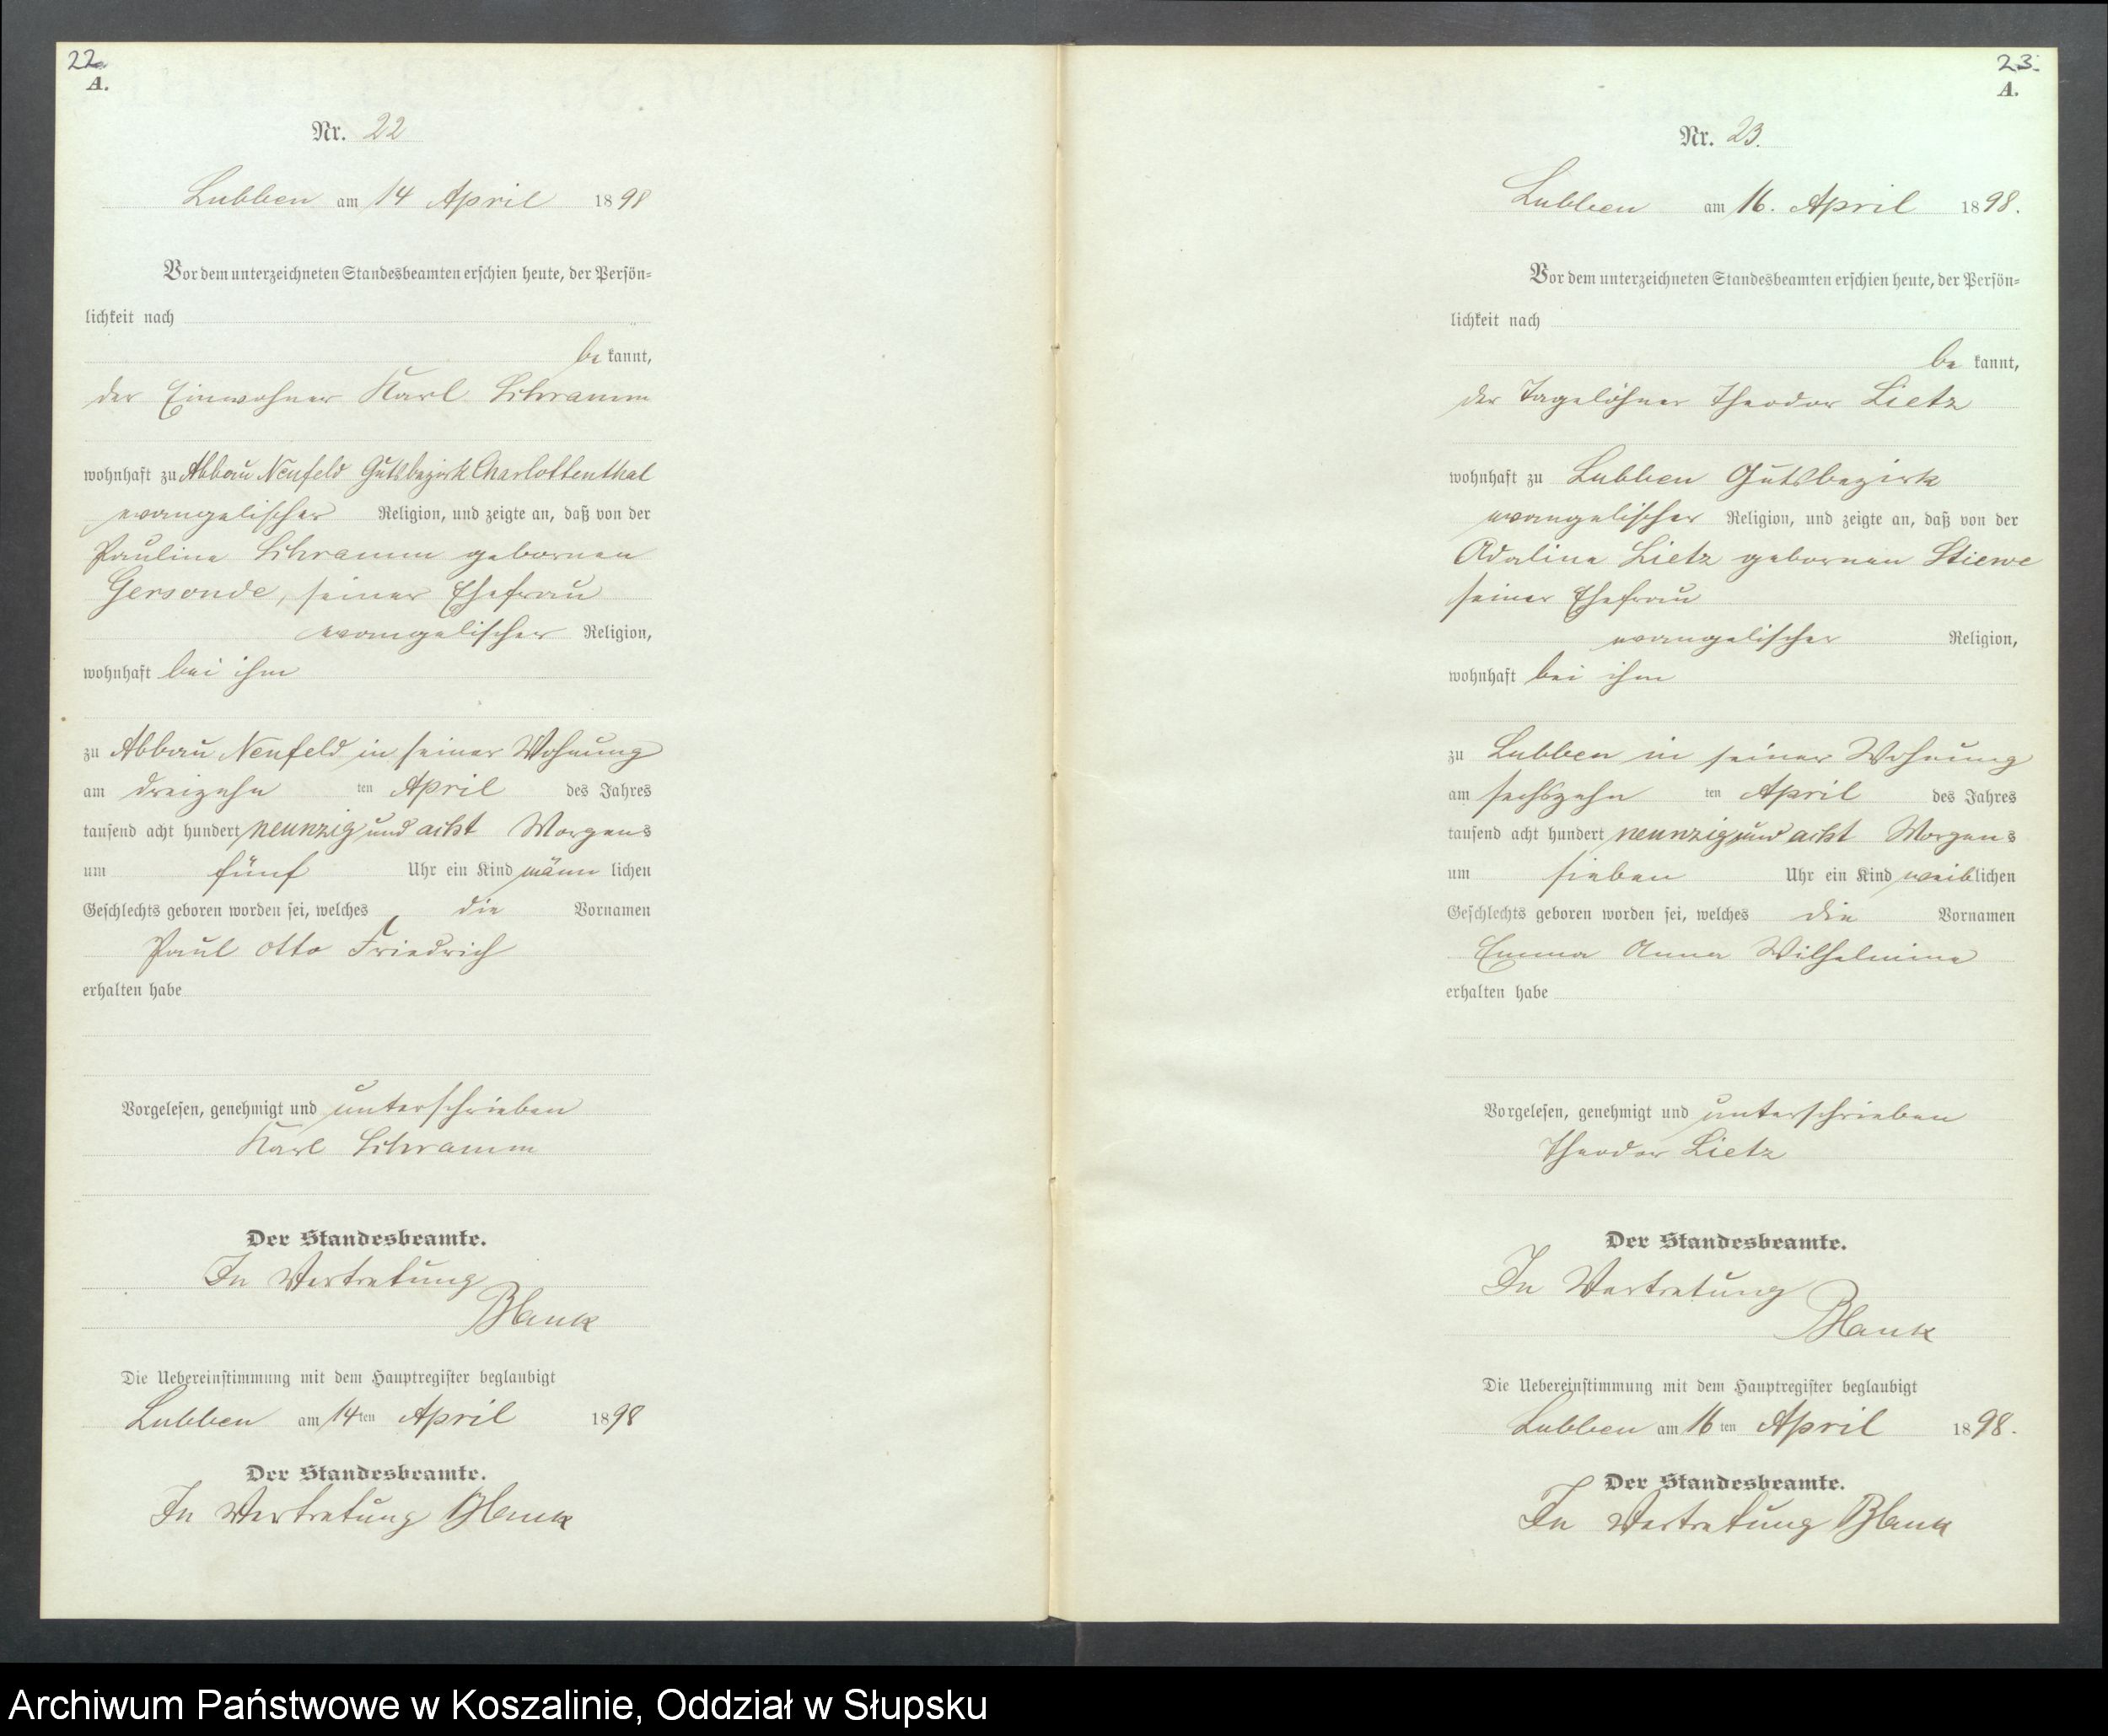 22.
A.
Nr. 22
Lubben am 14 April 1898
Vor dem unterzeichneten Standesbeamten erschien heute, der Persön=
lichkeit nach
be kannt,
der Einwohner Karl Schramm
wohnhaft zu Abbau Neufeld Gutsbezirk Charlottenthal
evangelischer Religion, und zeigte an, daß von der
Pauline Schramm gebornen
Gersonde, seiner Ehefrau
evangelischer Religion,
wohnhaft bei ihm
zu Abbau Neufeld in seiner Wohnung
am dreizehn ten April des Jahres
tausend acht hundert neunzig und acht Morgens
um fünf Uhr ein Kind männ lichen
Geschlechts geboren worden sei, welches die Vornamen
Paul Otto Friedrich
erhalten habe
Vorgelesen, genehmigt und unterschrieben
Karl Schramm
Der Standesbeamte.
In Vertretung
Blank
Die Uebereinstimmung mit dem Hauptregister beglaubigt
Lubben am 14ten April 1898
Der Standesbeamte.
In Vertretung Blank
23.
A.
Nr. 23.
Lubben am 16. April 1898.
Vor dem unterzeichneten Standesbeamten erschien heute, der Persön=
lichkeit nach
be kannt,
der Tagelöhner Theodor Lietz
wohnhaft zu Lubben Gutsbezirk
evangelischer Religion, und zeigte an, daß von der
Adaline Lietz gebornen Stiewe
seiner Ehefrau
evangelischer Religion,
wohnhaft bei ihm
zu Lubben in seiner Wohnung
am sechszehn ten April des Jahres
tausend acht hundert neunzig und acht Morgens
um sieben Uhr ein Kind weiblichen
Geschlechts geboren worden sei, welches die Vornamen
Emma Anna Wilhelmine
erhalten habe
Vorgelesen, genehmigt und unterschrieben
Theodor Lietz
Der Standesbeamte.
In Vertretung
Blank
Die Uebereinstimmung mit dem Hauptregister beglaubigt
Lubben am 16 ten April 1898.
Der Standesbeamte.
In Vertretung Blank
Archiwum Państwowe w Koszalinie, Oddział w Słupsku